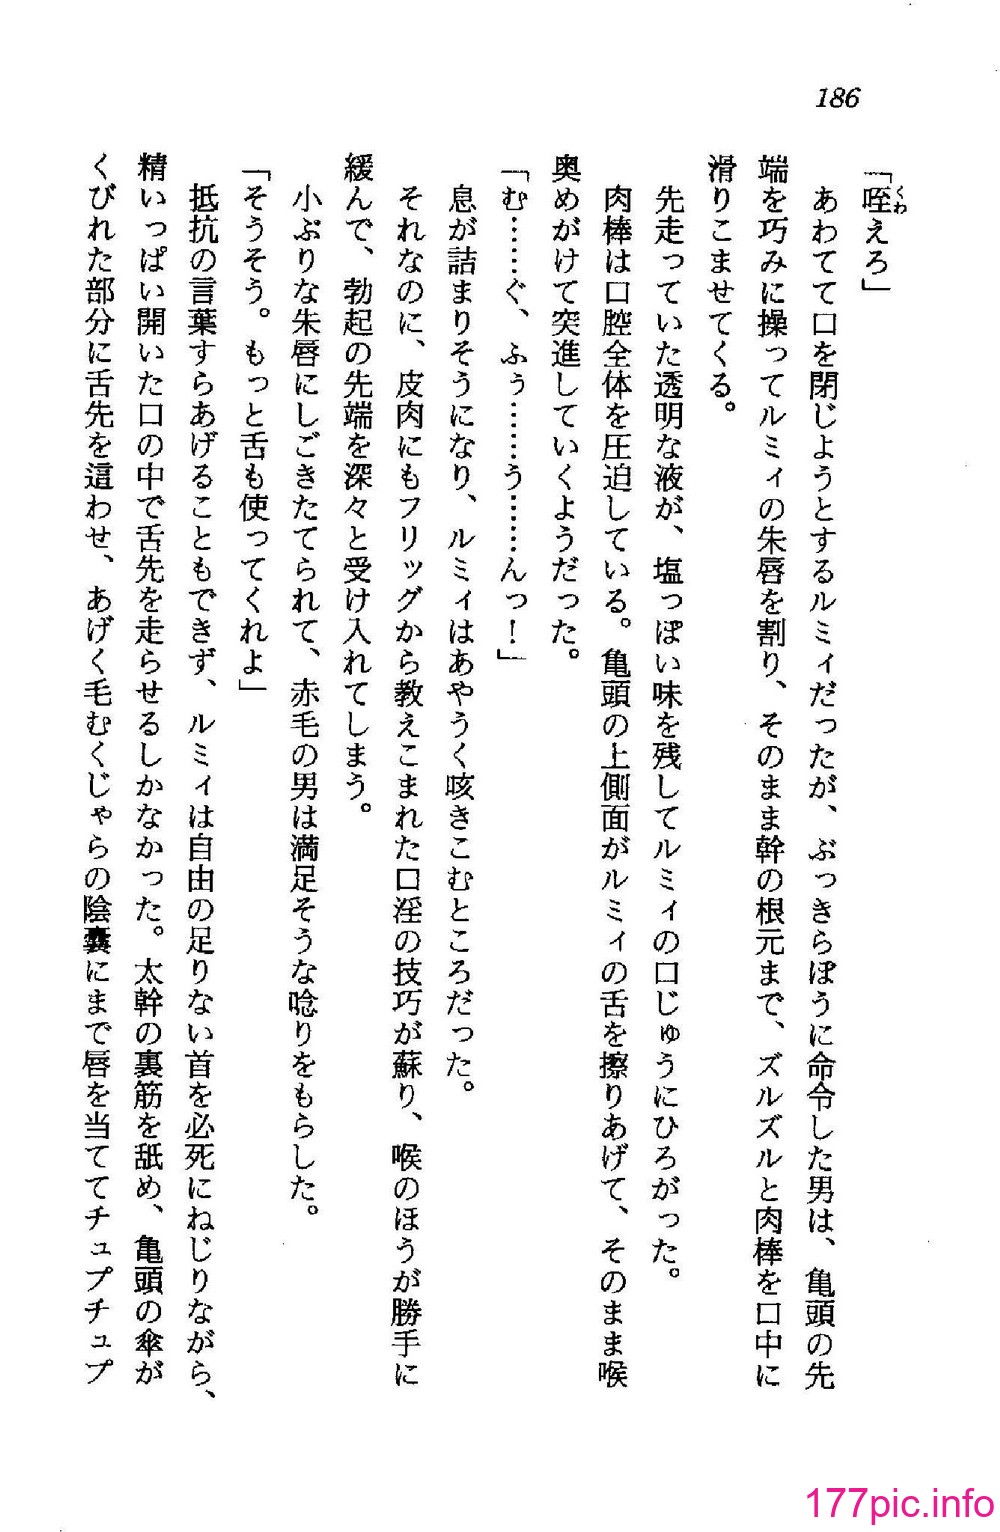 186
「咥えろ」
くわ
あわてて口を閉じようとするルミィだったが、ぶっきらぼうに命令した男は、亀頭の先
端を巧みに操ってルミィの朱唇を割り、そのまま幹の根元まで、ズルズルと肉棒を口中に
滑りこませてくる。
先走っていた透明な液が、塩っぽい味を残してルミィの口じゅうにひろがった。
肉棒は口腔全体を圧迫している。亀頭の上側面がルミィの舌を擦りあげて、そのまま喉
奥めがけて突進していくようだった。
「む……ぐ、ふぅ……う……んっ！」
息が詰まりそうになり、ルミィはあやうく咳きこむところだった。
それなのに、皮肉にもフリッグから教えこまれた口淫の技巧が蘇り、喉のほうが勝手に
緩んで、勃起の先端を深々と受け入れてしまう。
小ぶりな朱唇にしごきたてられて、赤毛の男は満足そうな唸りをもらした。
「そうそう。もっと舌も使ってくれよ」
抵抗の言葉すらあげることもできず、ルミィは自由の足りない首を必死にねじりながら、
精いっぱい開いた口の中で舌先を走らせるしかなかった。太幹の裏筋を舐め、亀頭の傘が
くびれた部分に舌先を這わせ、あげく毛むくじゃらの陰嚢にまで唇を当ててチュプチュプ
177pic.info